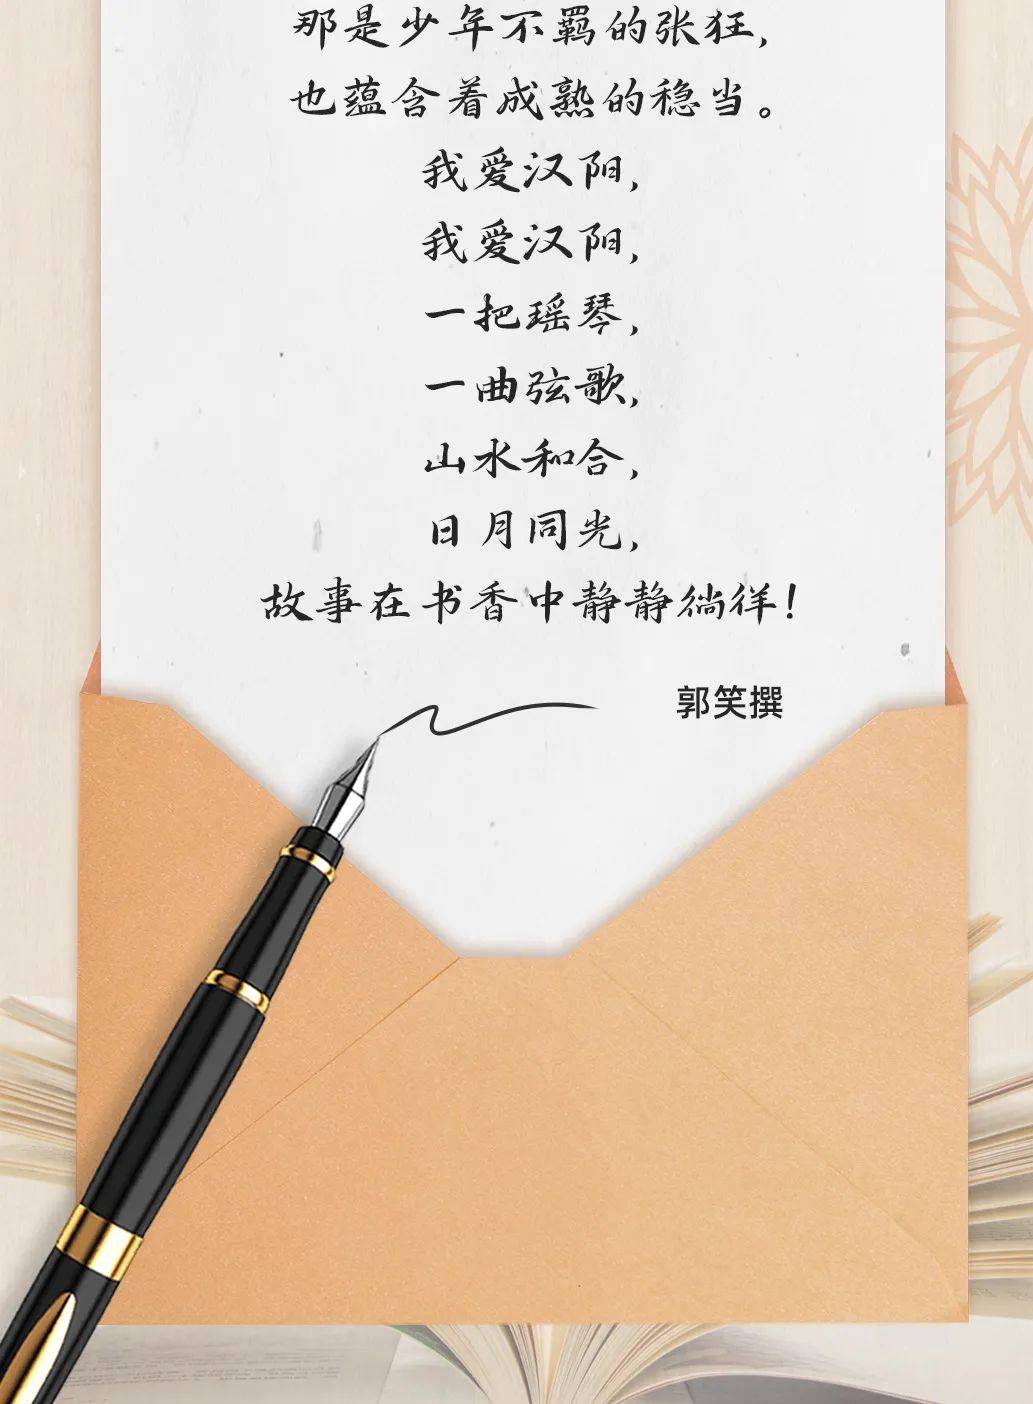 那是少年不羁的张狂，
也蕴含着成熟的稳当。
我爱汉阳，
我爱汉阳，
一把瑶琴，
一曲弦歌，
山水和合，
日月同光，
故事在书香中静静徜徉！
郭笑撰